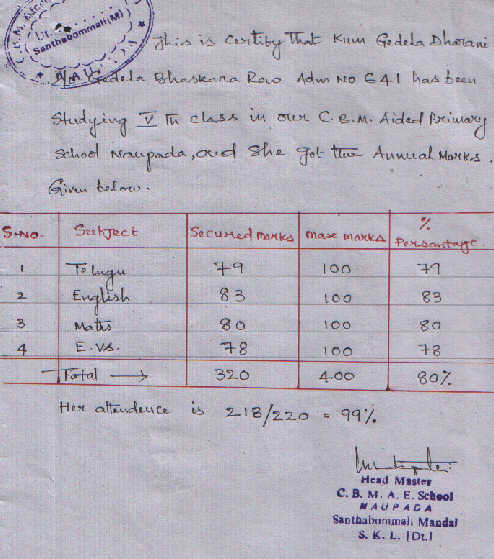 C.B.M. Aided
Santhabommali(M)
This is certify That Kum Gedela Dharani
D/o Gedela Bhaskara Rao Adm No 641 has been
Studying V Th class in our C.B.M. Aided Primary
School Naupada, and She got the Annual Marks.
Given below.
S.NO. Subject Secured Marks Max marks % Persantage
1 Telugu 79 100 79
2 English 83 100 83
3 Maths 80 100 80
4 E.V.S. 78 100 78
Total → 320 400 80%
Her attendence is 218/220 = 99%
Head Master
C. B. M. A. E. School
NAUPADA
Santhabommali Mandal
S. K. L. [Dt.]